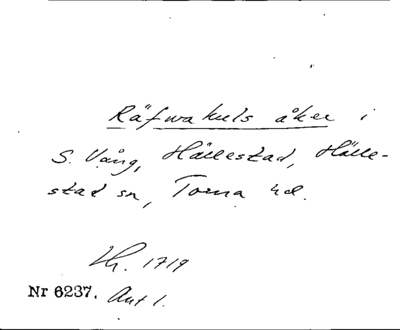 Räfwakuls åker i
S. Vång, Hällestad, Hälle-
stad sn, Torna hd.
Lh. 1719
Nr 6237. Avt 1.